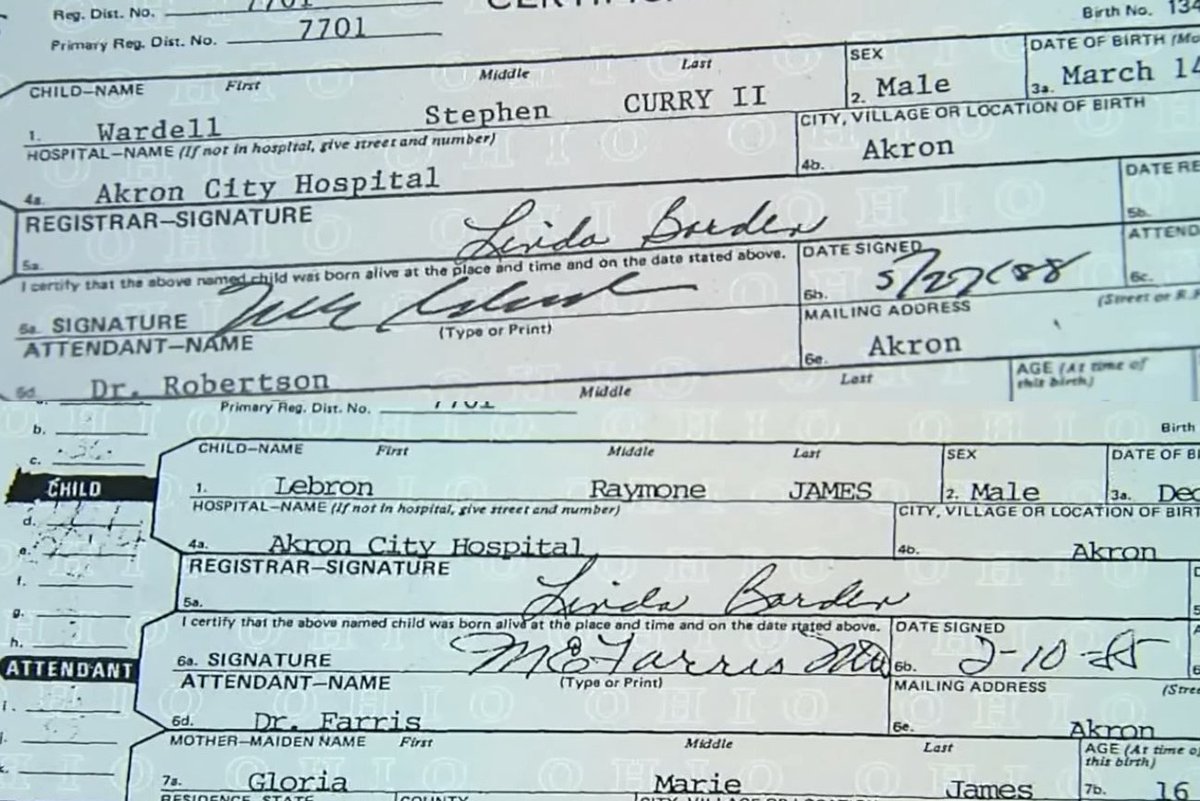 Reg. Dist. No. 7701
Primary Reg. Dist. No. 7701
Birth No. 134
CHILD—NAME First Middle Last
SEX
DATE OF BIRTH (Mo
1. Wardell Stephen CURRY II
2. Male
3a. March 14
HOSPITAL—NAME (If not in hospital, give street and number)
CITY, VILLAGE OR LOCATION OF BIRTH
4a. Akron City Hospital
4b. Akron
REGISTRAR—SIGNATURE
DATE RE
5a. Linda Barden
5b.
I certify that the above named child was born alive at the place and time and on the date stated above.
DATE SIGNED
ATTEND
6a. SIGNATURE
6b. 5/27/88
6c.
(Type or Print)
MAILING ADDRESS
(Street or R.
ATTENDANT—NAME
6d. Dr. Robertson
6e. Akron
Middle Last
AGE (At time of
this birth)
Primary Reg. Dist. No. 7701
Birth
b.
c.
CHILD
d.
e.
f.
g.
h.
ATTENDANT
i.
j.
k.
CHILD—NAME First Middle Last
SEX
DATE OF BI
1. Lebron Raymone JAMES
2. Male
3a. Dec
HOSPITAL—NAME (If not in hospital, give street and number)
CITY, VILLAGE OR LOCATION OF BIRT
4a. Akron City Hospital
4b. Akron
REGISTRAR—SIGNATURE
5a. Linda Barden
I certify that the above named child was born alive at the place and time and on the date stated above.
DATE SIGNED
6a. SIGNATURE Farris
6b. 2-10-85
(Type or Print)
MAILING ADDRESS
(Stree
ATTENDANT—NAME
6d. Dr. Farris
6e. Akron
MOTHER—MAIDEN NAME First Middle Last
AGE (At time of
this birth)
7a. Gloria Marie James
7b. 16
RESIDENCE STATE
COUNTY
CITY, VILLAGE OR LOCATION